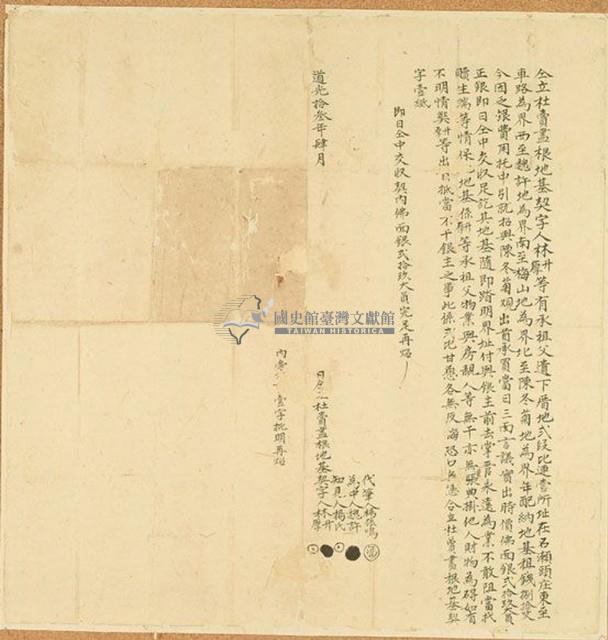 仝立杜賣盡根地基契字人林升厚等有承祖父遺下厝地弍段比連壹所址在石瀨頭庄東至
車路為界西至魏許地為界南至梅山地為界北至陳冬菊地為界年配納地基租錢捌拾文
今因乏銀費用托中引就招與陳冬菊观出首承買當日三面言議實出時價佛面銀弍拾玖大員
正銀即日仝中交收足訖其地基隨即踏明界址付與銀主前去掌管永遠為業不敢阻當找
贖生端等情保地基係軿等承祖父物業與房親人等無干亦無張典掛他人財物為碍如有
不明情獘等出抵當不干銀主之事此係弍比甘愿各無反悔恐口無憑合立杜賣盡根地基契
字壹紙
即日仝中交收契內佛面銀弍拾玖大員完足再炤
代筆人 張鳴
為中人魏許
知見人楊氏
道光拾叁年肆月 日仝立杜賣盡根地基契字人林升厚
內壹字批明再炤
國史館臺灣文獻館
TAIWAN HISTORICA